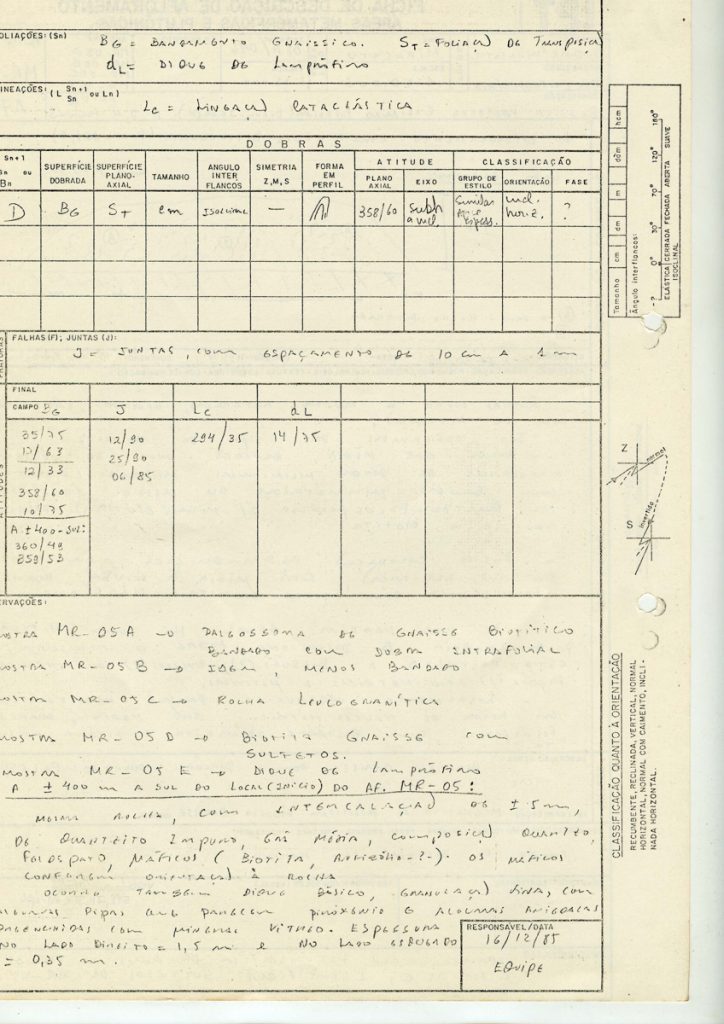 OLIAÇÕES: (Sn) BG = BANDAMENTO GNAISSICO. ST = FOLIAÇÃO DE TRANSPOSIÇ
dL = DIQUE DE LAMPRÓFIRO
INEAÇÕES: (L Sn+1 Sn ou Ln)
LC = LINEAÇÃO CATACLÁSTICA
DOBRAS
Sn+1 Sn ou Bn
SUPERFÍCIE DOBRADA
SUPERFÍCIE PLANO-AXIAL
TAMANHO
ANGULO INTER FLANCOS
SIMETRIA Z,M,S
FORMA EM PERFIL
ATITUDE
PLANO AXIAL
EIXO
CLASSIFICAÇÃO
GRUPO DE ESTILO
ORIENTAÇÃO
FASE
D BG ST cm ISOCLINAL — 358/60 Similar incl. horiz. ?
FALHAS(F); JUNTAS (J):
J = JUNTAS, COM ESPAÇAMENTO DE 10 cm A 1 m
FINAL
CAMPO BG J LC dL
35/75 12/90 294/35 14/75
13/63 25/90
12/33 06/85
358/60
10/75
A ±400-SUL:
360/49
359/53
ERVAÇÕES:
OSTRA MR-05A → PALEOSSOMA DE GNAISSE BIOTÍTICO
BANDADO COM DOBRA INTRAFOLIAL
OSTRA MR-05B → IDEM, MENOS BANDADO
MOSTRA MR-05C → ROCHA LEUCOGRANÍTICA
MOSTRA MR-05D → BIOTITA GNAISSE COM
SULFETOS.
MOSTRA MR-05E → DIQUE DE LAMPRÓFIRO
A ±400 m A SUL DO LOCAL (INÍCIO) DO AF. MR-05:
MESMA ROCHA, COM INTERCALAÇÃO DE ±5m,
DE QUARTZITO IMPURO, GRÃ MÉDIA, COMPOSIÇÃO QUARTZO,
FELDSPATO, MÁFICOS (BIOTITA, ANFIBÓLIO-?-). OS MÁFICOS
CONFEREM ORIENTAÇÃO À ROCHA
OCORRE TAMBÉM DIQUE BÁSICO, GRANULAÇÃO FINA, COM
ALGUMAS RIPAS QUE PARECEM PIROXÊNIO E ALGUMAS AMIGDALAS
PREENCHIDAS COM MINERAL VITREO. ESPESSURA
NO LADO DIREITO = 1,5 m E NO LADO ESQUERDO
= 0,35 m.
RESPONSÁVEL/DATA
16/12/85
EQUIPE
Tamanho cm dm m dam hcm
Ângulo interflancos:
-? 0° 30° 70° 120° 180°
ELÁSTICA CERRADA FECHADA ABERTA SUAVE
ISOCLINAL
Z normal
S invertido
CLASSIFICAÇÃO QUANTO À ORIENTAÇÃO
RECUMBENTE, RECLINADA, VERTICAL, NORMAL
HORIZONTAL, NORMAL COM CAIMENTO, INCLI-
NADA HORIZONTAL.